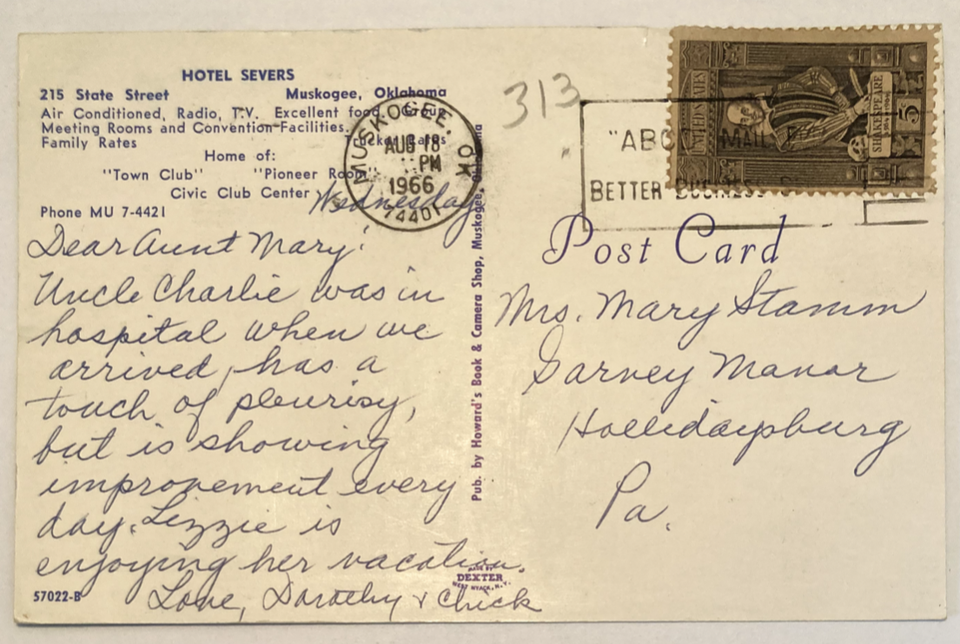 HOTEL SEVERS
215 State Street Muskogee, Oklahoma
Air Conditioned, Radio, T.V. Excellent food
Meeting Rooms and Convention Facilities.
Family Rates
Home of:
"Town Club" "Pioneer Room"
Civic Club Center
Phone MU 7-4421
MUSKOGEE, OK
AUG 18
PM
1966
74401
313
"ABC MAIL
BETTER BUSINESS
UNITED STATES
SHAKESPEARE
5
Wednesday
Dear Aunt Mary:
Uncle Charlie was in
hospital when we
arrived, has a
touch of pleurisy,
but is showing
improvement every
day. Lizzie is
enjoying her vacation.
Love, Dorothy & Chick
57022-B
Pub. by Howard's Book & Camera Shop, Muskogee, Oklahoma
MADE BY
DEXTER
WEST NYACK, N.Y.
Post Card
Mrs. Mary Stamm
Garvey Manor
Hollidaysburg
Pa.